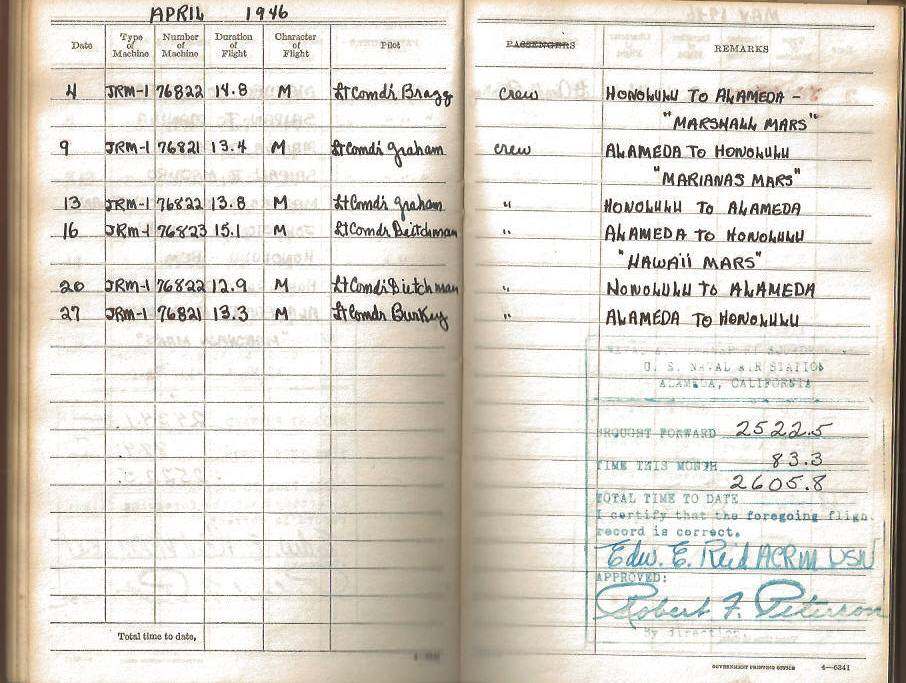 APRIL 1946
Date Type of Machine Number of Machine Duration of Flight Character of Flight Pilot PASSENGERS REMARKS
4 JRM-1 76822 14.8 M Lt Comdr Bragg crew HONOLULU TO ALAMEDA -
"MARSHALL MARS"
9 JRM-1 76821 13.4 M Lt Comdr Graham crew ALAMEDA TO HONOLULU
"MARIANAS MARS"
13 JRM-1 76822 13.8 M Lt Comdr Graham " HONOLULU TO ALAMEDA
16 JRM-1 76823 15.1 M Lt Comdr Deitchman " ALAMEDA TO HONOLULU
"HAWAII MARS"
20 JRM-1 76822 12.9 M Lt Comdr Dietchman " HONOLULU TO ALAMEDA
27 JRM-1 76821 13.3 M Lt Comdr Burkey " ALAMEDA TO HONOLULU
U. S. NAVAL AIR STATION
ALAMEDA, CALIFORNIA
BROUGHT FORWARD 2522.5
TIME THIS MONTH 83.3
2605.8
TOTAL TIME TO DATE
I certify that the foregoing fligh
record is correct.
Edw. E. Reid ACRM USN
APPROVED:
Robert F. Peterson
By direction
Total time to date,
GOVERNMENT PRINTING OFFICE 4—6341